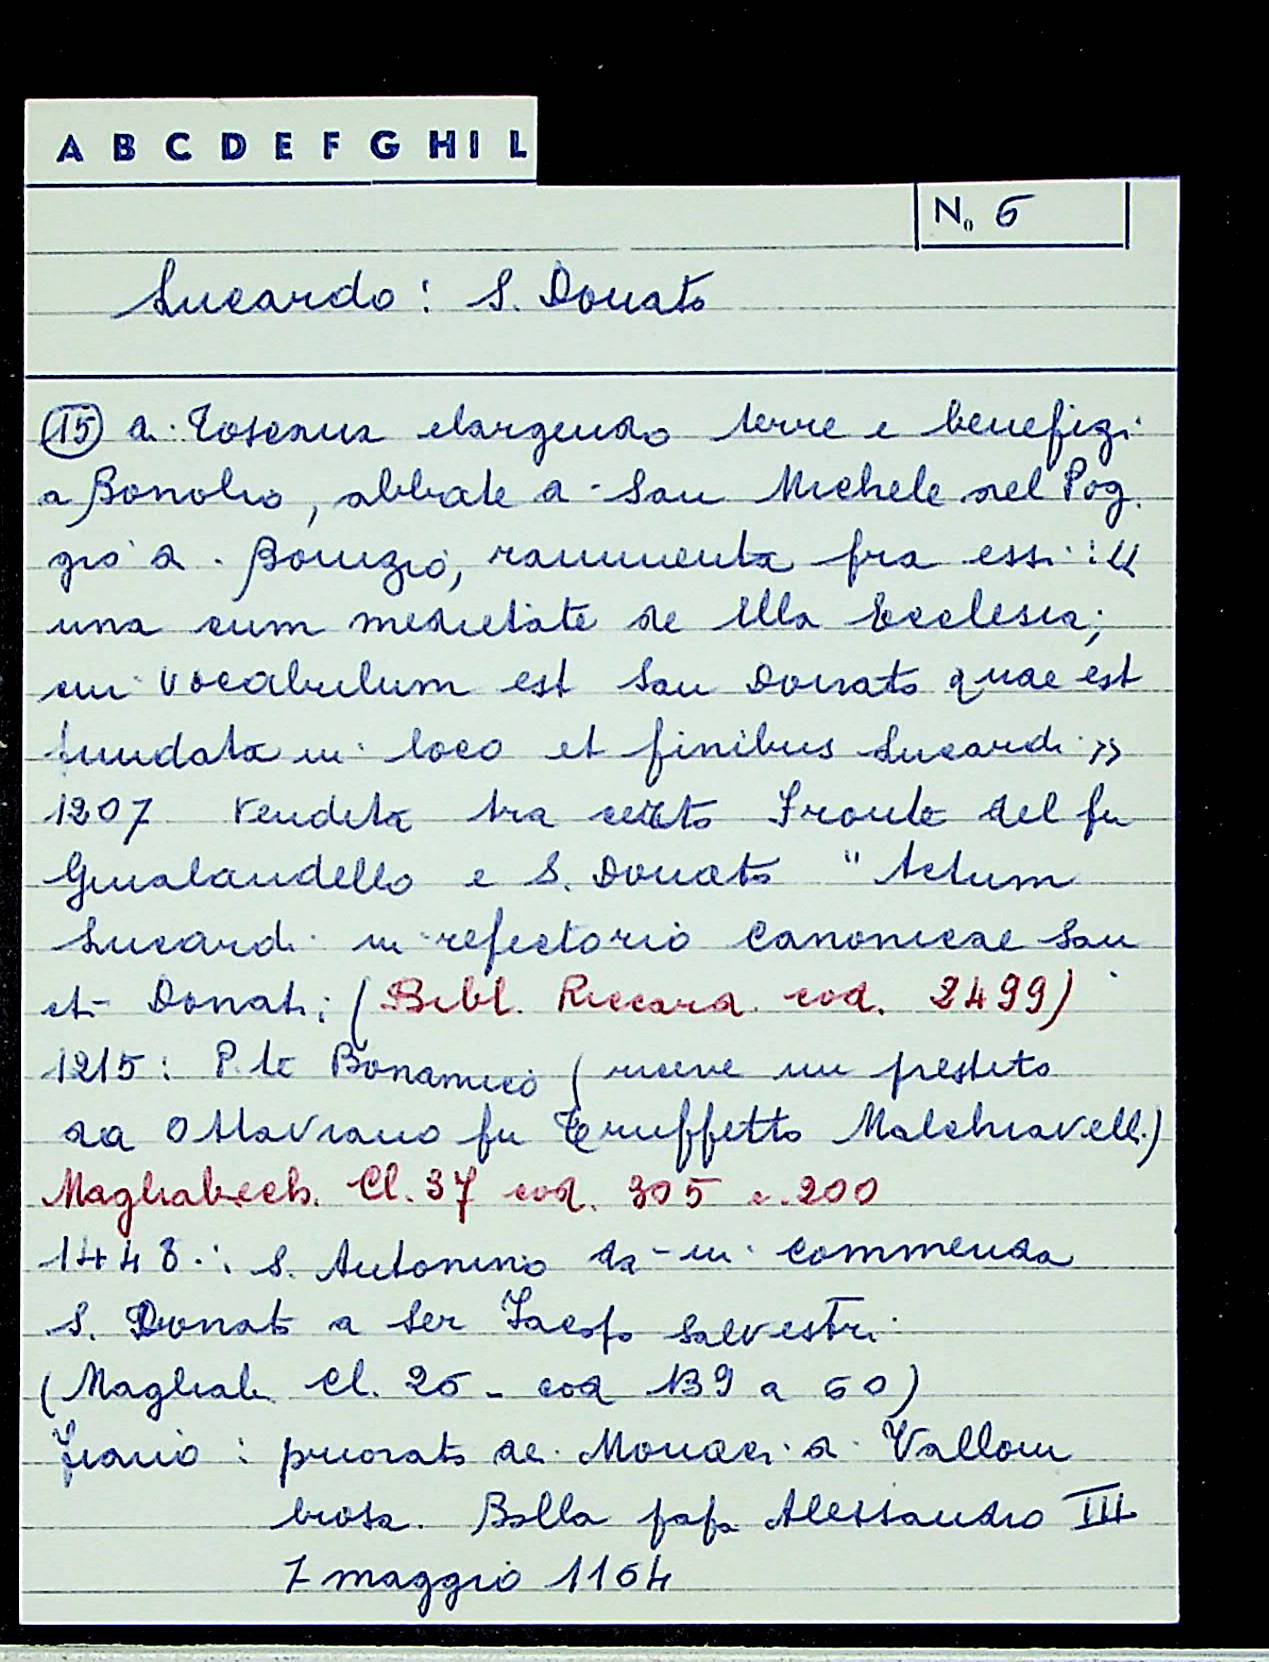 A B C D E F G H I L
No 6
Lucardo : S. Donato
(15) di Toscana elargendo terre e benefizi
a Bonolio, abbate di San Michele nel Pog
gio di Bonizio, rammenta fra essi : «
una cum medietate de illa Ecclesia,
cui vocabulum est San Donato quae est
fundata in loco et finibus Lucardi »
1207 Vendita tra certo Fronte del fu
Gualandello e S. Donato " Actum
Lucardi in refectorio canonicae San
cti Donati; (Bibl. Riccard. cod. 2499)
1215 : P. te Bonamico (riceve un prestito
da Ottaviano fu Truffetto Malchiavelli)
Magliabech. Cl. 37 cod. 305 c. 200
1448 : S. Antonino dà in commenda
S. Donato a Ser Jacopo Salvestri
(Magliab. Cl. 26 - cod 139 a 60)
: priorato dei Monaci di Vallom
brosa. Bolla papa Alessandro III
7 maggio 1164